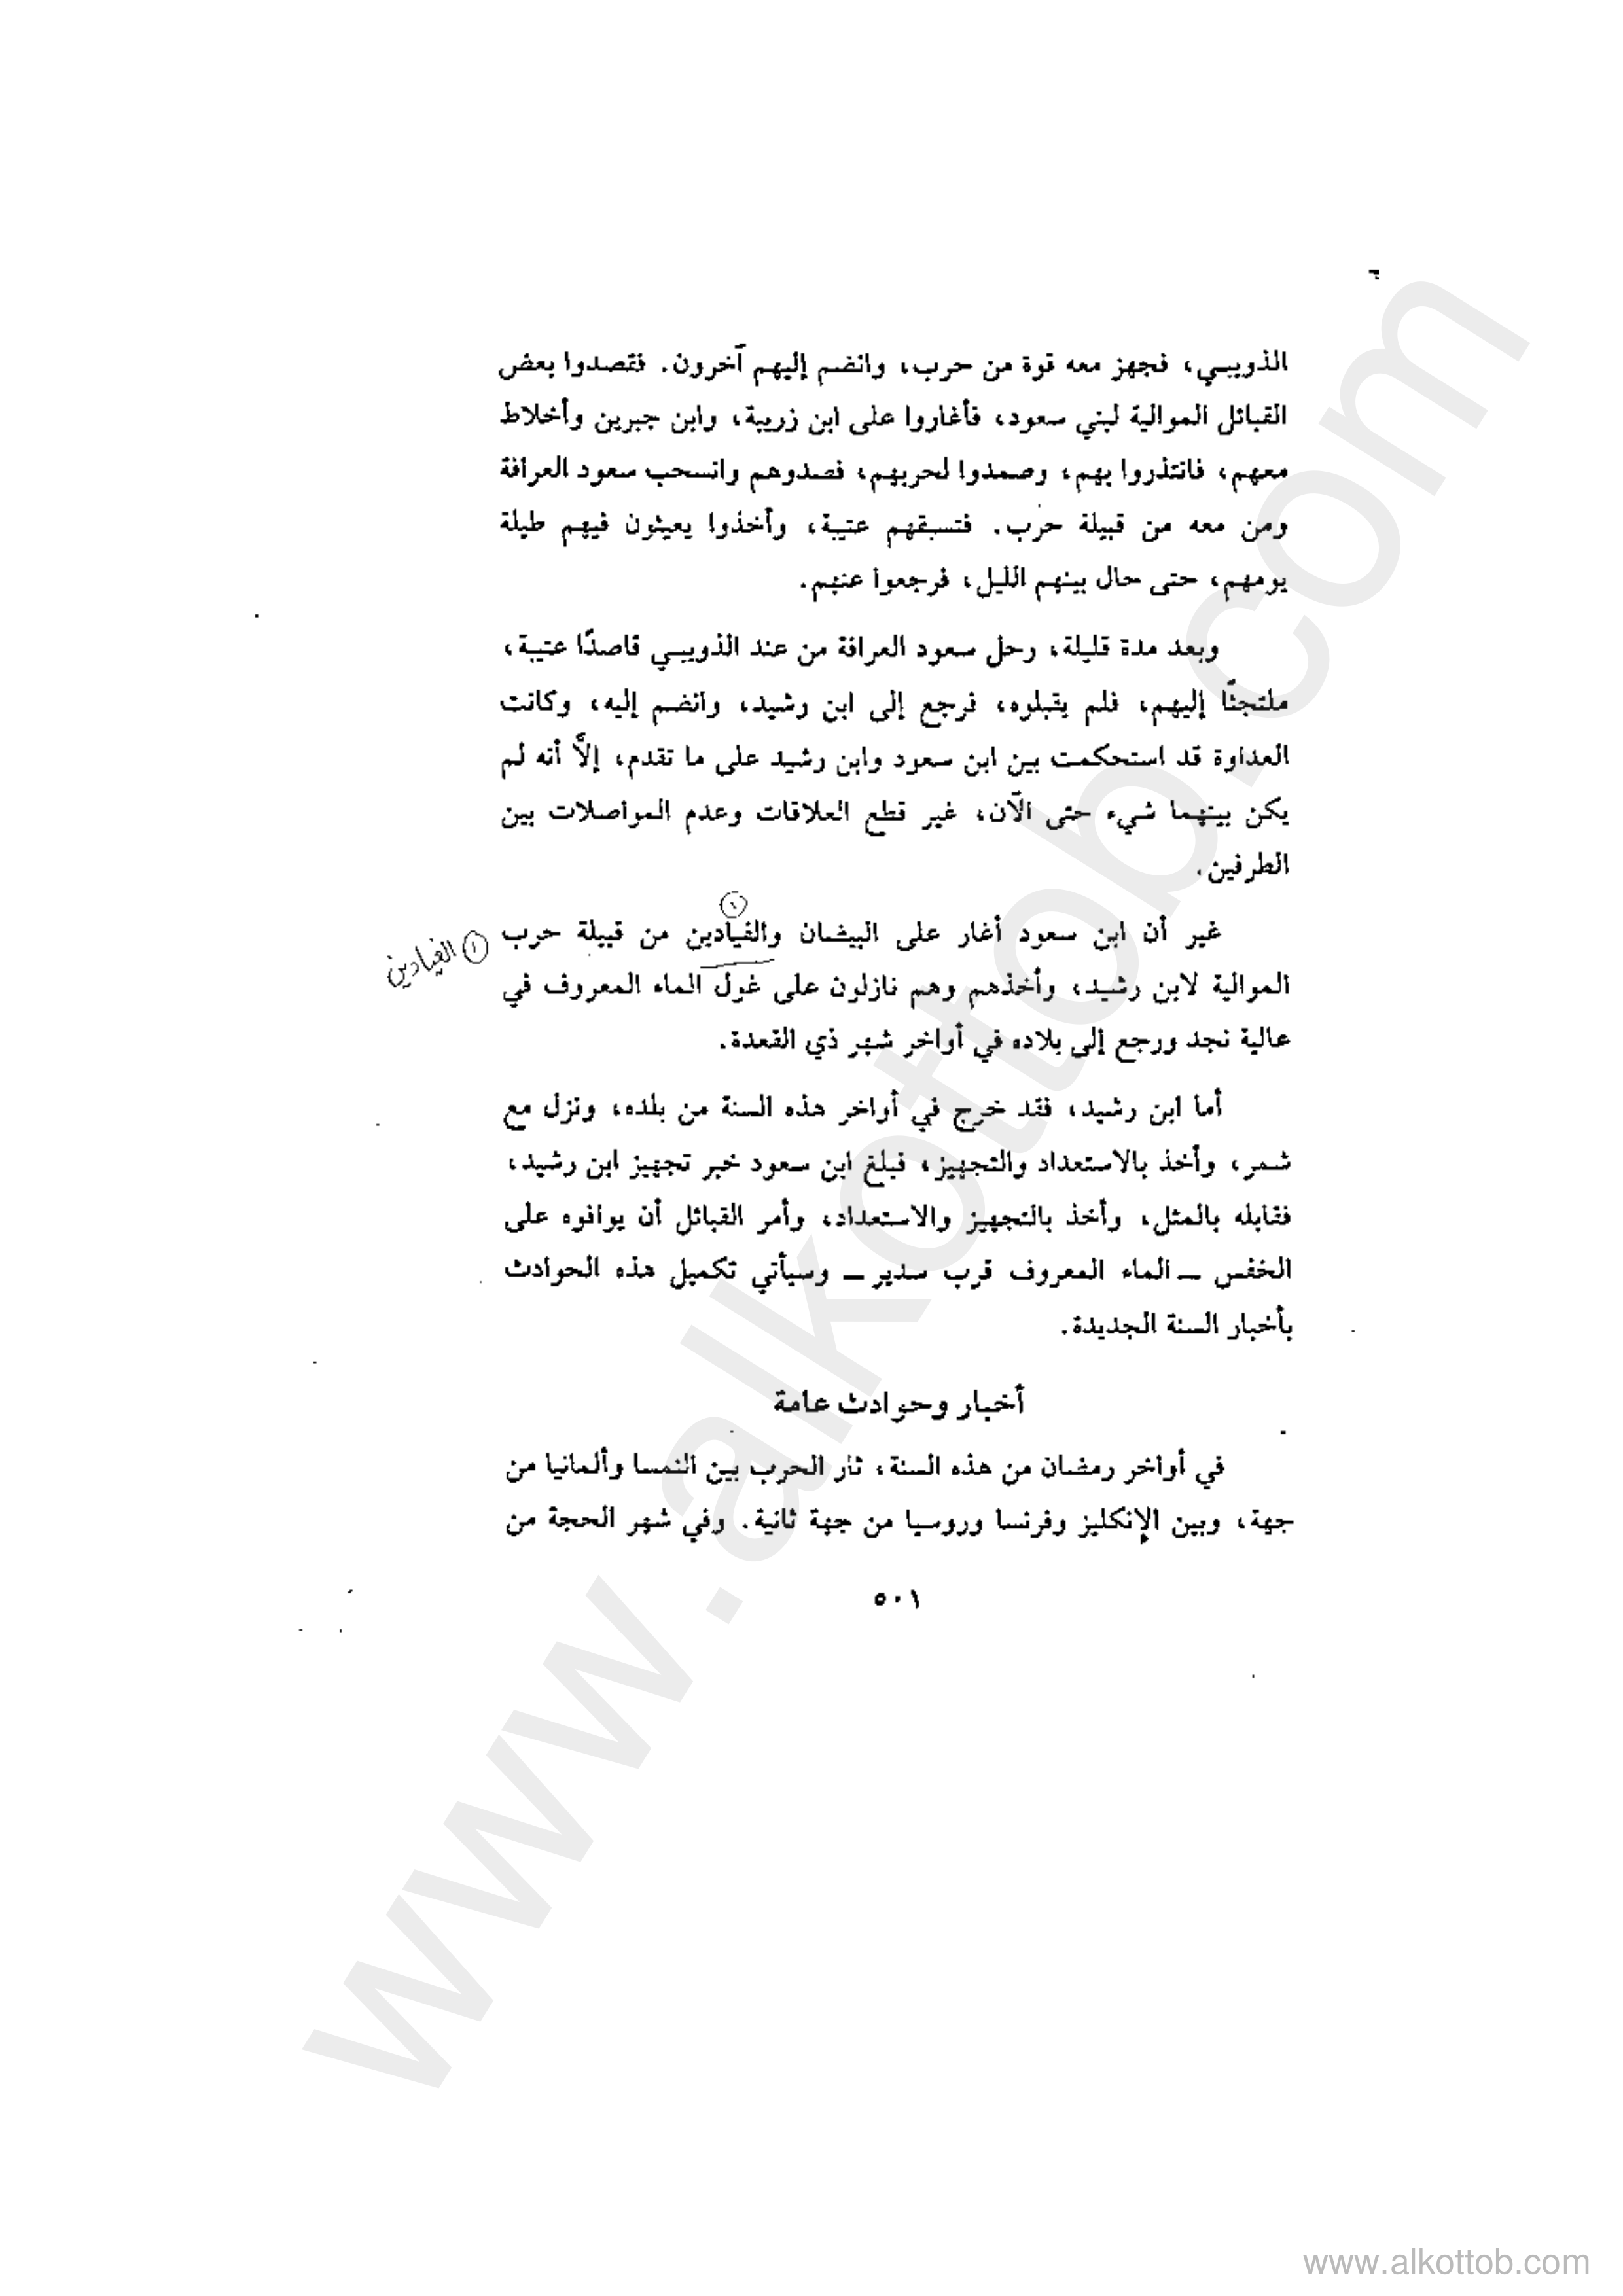 الذويبي، فجهز معه قوة من حرب، وانضم إليهم آخرون. فقصدوا بعض
القبائل الموالية لبني سعود، فأغاروا على ابن زريبة، وابن جبرين وأخلاط
معهم، فانتذروا بهم، وصمدوا لحربهم، فصدوهم وانسحب سعود العرافة
ومن معه من قبيلة حرب. فتسبقهم عتيبة، وأخذوا يعيثون فيهم طيلة
يومهم، حتى حال بينهم الليل، فرجعوا عنهم.
وبعد مدة قليلة، رحل سعود العرافة من عند الذويبي قاصدًا عتيبة،
ملتجئًا إليهم، فلم يقبلوه، فرجع إلى ابن رشيد، وانضم إليه، وكانت
العداوة قد استحكمت بين ابن سعود وابن رشيد على ما تقدم، إلاَّ أنه لم
يكن بينهما شيء حتى الآن، غير قطع العلاقات وعدم المواصلات بين
الطرفين.
غير أن ابن سعود أغار على البيضان والفيادين من قبيلة حرب
① الغيادين
الموالية لابن رشيد، وأخذهم وهم نازلون على غول الماء المعروف في
عالية نجد ورجع إلى بلاده في أواخر شهر ذي القعدة.
أما ابن رشيد، فقد خرج في أواخر هذه السنة من بلده، ونزل مع
شمر، وأخذ بالاستعداد والتجهيز، فبلغ ابن سعود خبر تجهيز ابن رشيد،
فقابله بالمثل، وأخذ بالتجهيز والاستعداد، وأمر القبائل أن يوافوه على
الخفس ــ الماء المعروف قرب سدير ــ وسيأتي تكميل هذه الحوادث
بأخبار السنة الجديدة.
أخبار وحوادث عامة
في أواخر رمضان من هذه السنة، ثار الحرب بين النمسا وألمانيا من
جهة، وبين الإنكليز وفرنسا وروسيا من جهة ثانية. وفي شهر الحجة من
٥٠١
www.alkottob.com
www.alkottob.com